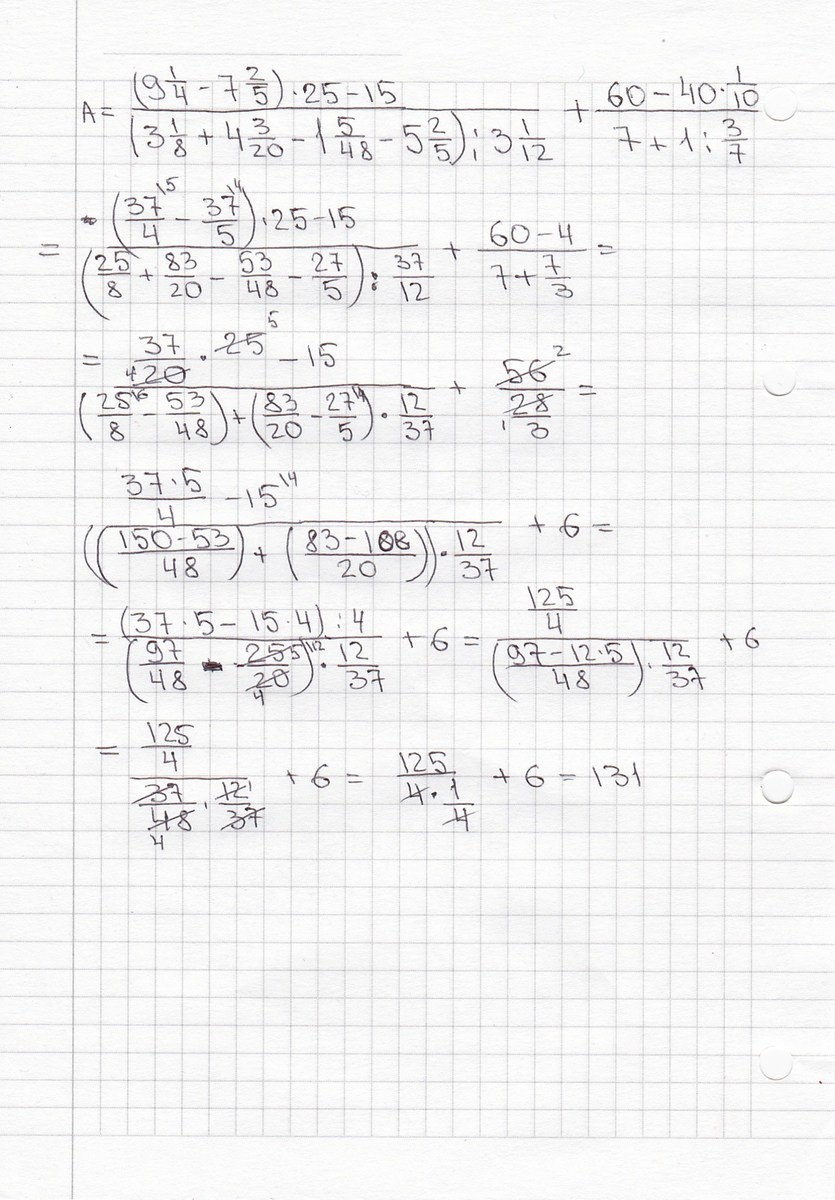 A = ((9 1/4 − 7 2/5) · 25 − 15) / ((3 1/8 + 4 3/20 − 1 5/48 − 5 2/5) : 3 1/12) + (60 − 40 · 1/10) / (7 + 1 : 3/7)
= ((37/4 ^(5) − 37/5 ^(4)) · 25 − 15) / ((25/8 + 83/20 − 53/48 − 27/5) : 37/12) + (60 − 4) / (7 + 7/3) =
= (37/20 (4) · 25 ^5 − 15) / ((25/8 ^(6) − 53/48) + (83/20 − 27/5 ^(4)) · 12/37) + 56 ^2 / (28 (1) / 3) =
((37 · 5)/4 − 15 ^(4)) / (((150 − 53)/48) + ((83 − 108)/20)) · 12/37 + 6 =
= ((37 · 5 − 15 · 4) : 4) / ((97/48 − 25 5/20 (4) ^(12)) · 12/37) + 6 = (125/4) / (((97 − 12 · 5)/48) · 12/37) + 6
= (125/4) / (37/48 (4) · 12 ^1/37) + 6 = 125 / (4 · 1/4) + 6 = 131